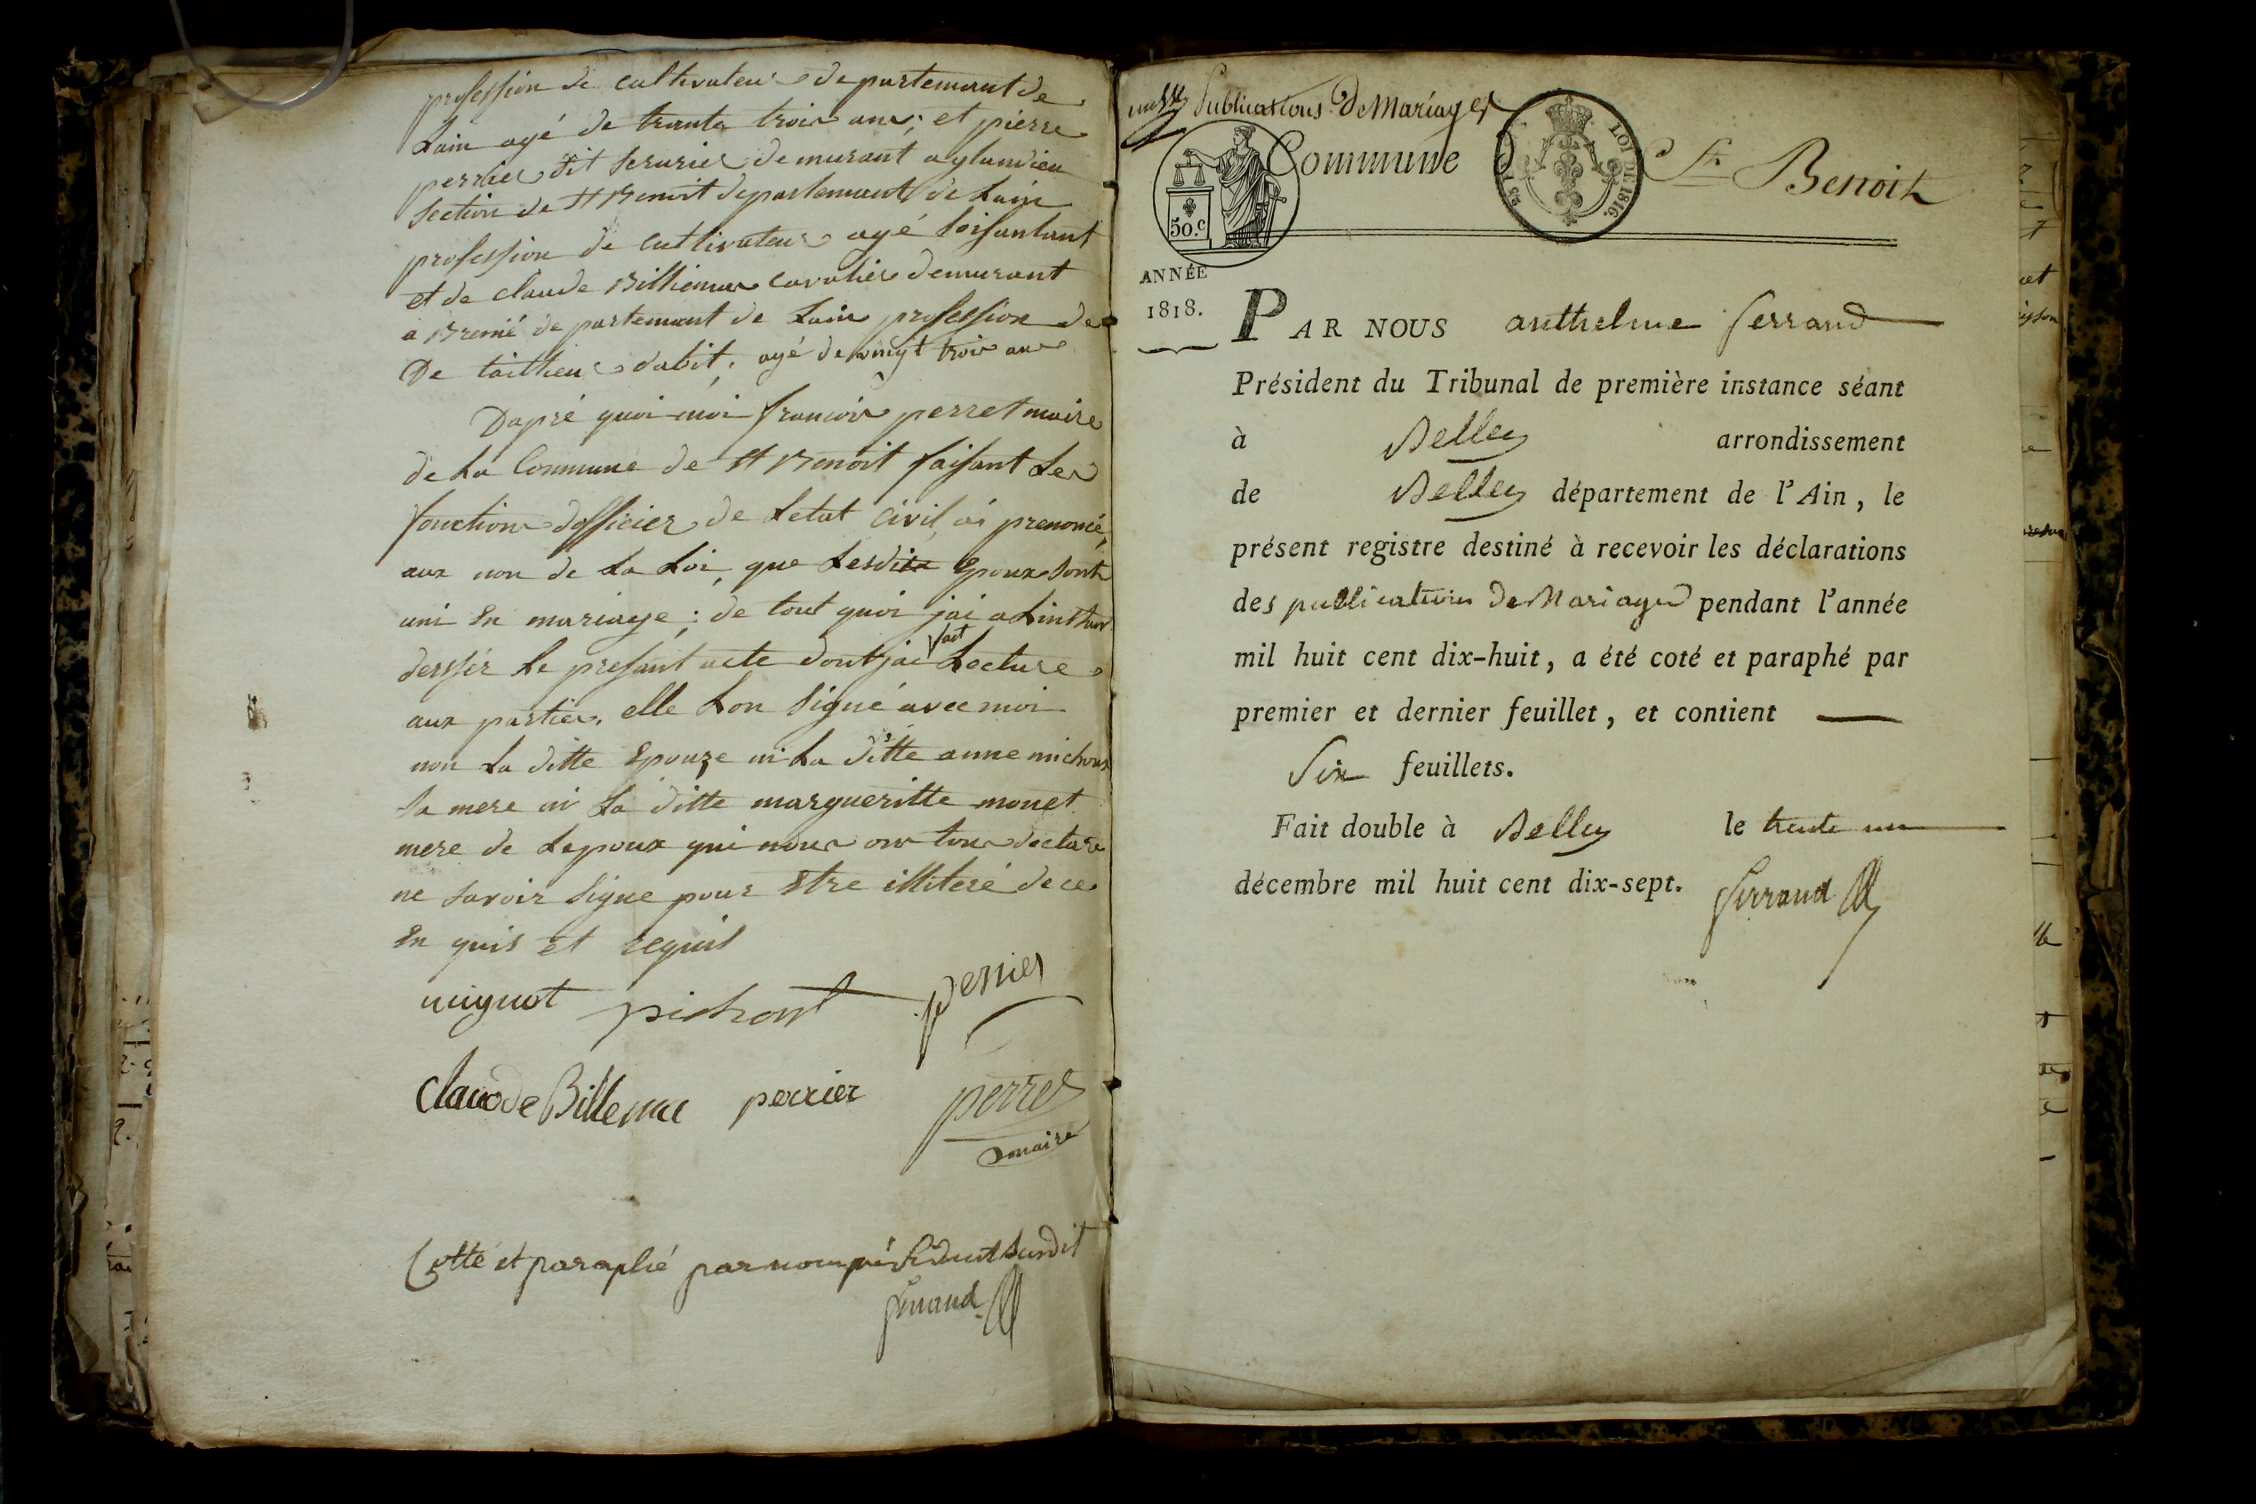 profession de cultivateur departemant de
Lain agé de trante trois ans; et pierre
perrier dit serurier demurant a glandieu
section de St Benoit departemant de Lain
profession de cultivateur agé soisantant
et de claude Billiemaz cavalier demurant
a Brenié departemant de Lain profession de
De tailleur dabit, agé de vingt trois ans
Dapré quoi moi francois perret maire
de La Commune de St Benoit faisant Les
fonction dofficier de Letat civil ai prenoncé,
aux non de La Loi, que Lesdits Epoux sont
uni En mariage; de tout quoi jai a Linstant
dersser Le presant acte dont jai fait Lecture
aux parties, elle Lon signé avec moi
non La ditte Epouze ni La ditte anne michoux
sa mere ni La ditte margueritte monet
mere de Lepoux qui nous on tous declare
ne savoir signe pour Etre illiteré de ce
En quis et requis
mignot pichont perrier
claude Billemaz perrier perret
maire
Cotté et paraphé par nous président susdit
ferrand
Publications De Mariages
Commune de St Benoit
50.c
LOI DE 1816.
ANNÉE
1818.
PAR NOUS anthelme ferrand
Président du Tribunal de première instance séant
à Belley arrondissement
de Belley département de l'Ain, le
présent registre destiné à recevoir les déclarations
des publications De Mariages pendant l'année
mil huit cent dix-huit, a été coté et paraphé par
premier et dernier feuillet, et contient
Six feuillets.
Fait double à Belley le trente un
décembre mil huit cent dix-sept.
ferrand